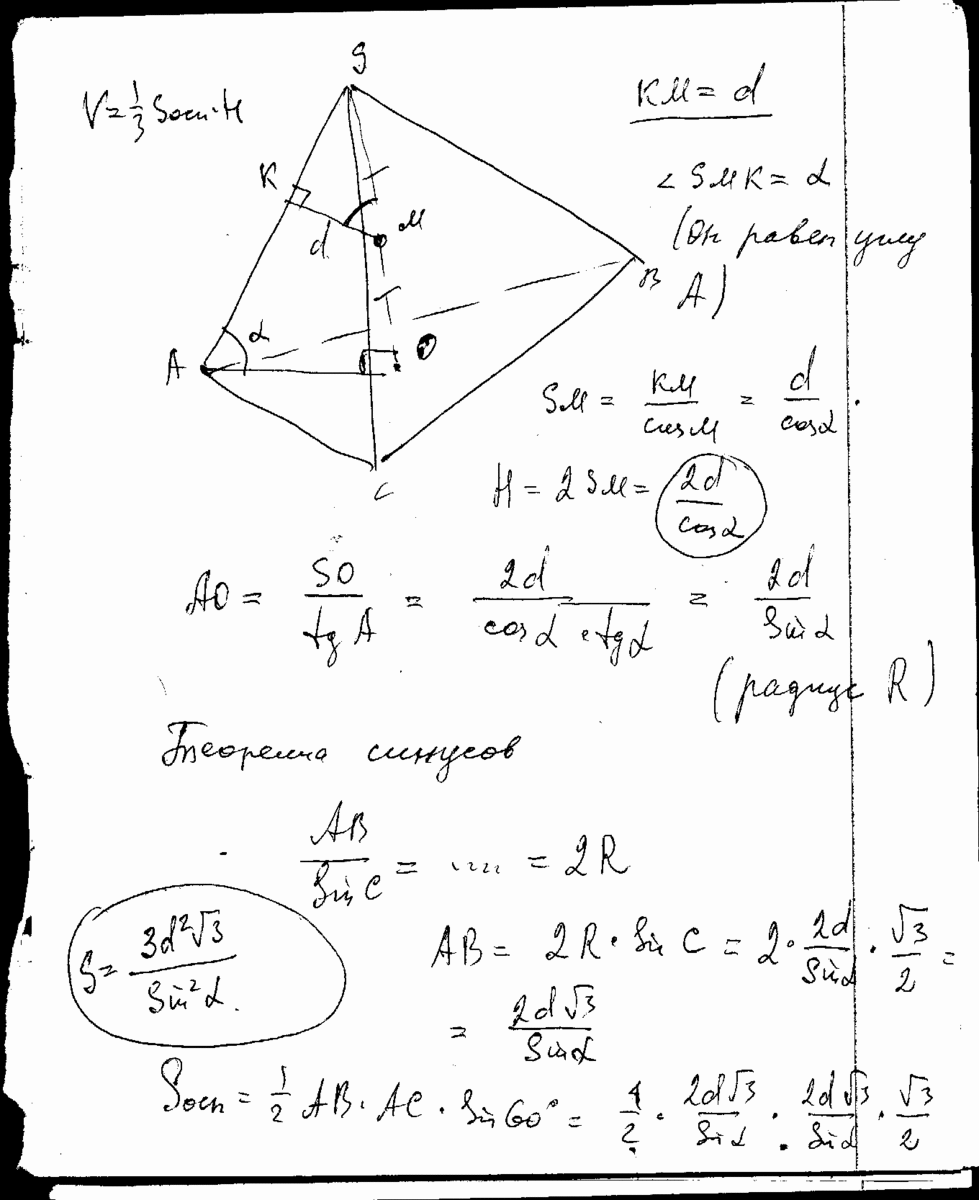 S
V=1/3 Sосн·H
KM = d
K
∠SMK = α
M
d
(Он равен углу
A)
B
α
O
A
SM = KM/cosM = d/cosα.
C
H = 2SM = 2d/cosα
AO = SO/tgA = 2d/(cosα · tgα) = 2d/Sinα
(радиус R)
Теорема синусов
AB/SinC = ..... = 2R
S = 3d²√3/Sin²α.
AB = 2R · Sin C = 2 · 2d/Sinα · √3/2 =
= 2d√3/Sinα
Sосн = 1/2 AB · AC · Sin60° = 1/2 · 2d√3/Sinα · 2d√3/Sinα · √3/2